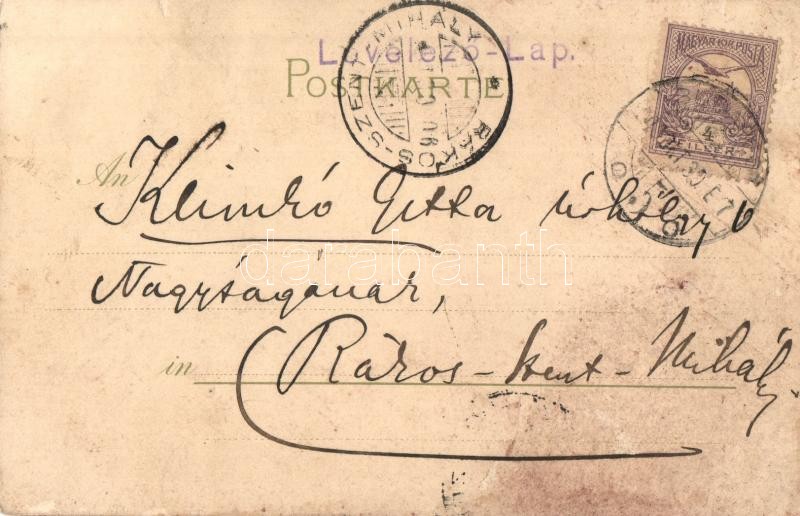 Levelező-Lap.
POSTKARTE
RÁKOS-SZENT-MIHÁLY
MAGYAR KIR. POSTA
4
FILLÉR
An Klimkó Gitta úrhölgy ő
Nagyságának,
in Rákos-Szent-Mihály
darabanth